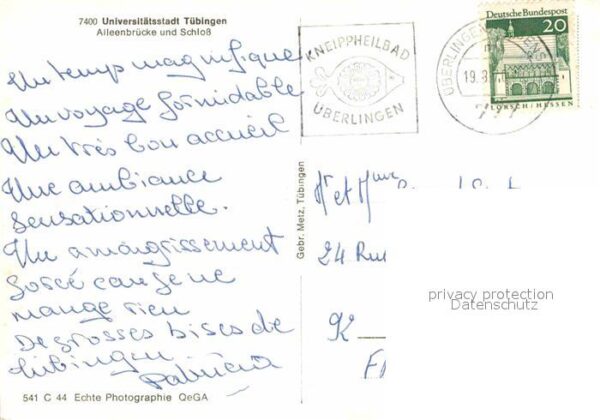 7400 Universitätsstadt Tübingen
Alleenbrücke und Schloß
Un temps magnifique
Un voyage formidable
Un très bon accueil
Une ambiance
sensationnelle.
Un amaigrissement
forcé car je ne
mange rien
De grosses bises de
Tübingen
Patricia
541 C 44 Echte Photographie QeGA
Gebr. Metz, Tübingen
KNEIPPHEILBAD
ÜBERLINGEN
ÜBERLINGEN
19.8.
Deutsche Bundespost
20
LORSCH/HESSEN
Mr et Mme
24 Rue
K
privacy protection
Datenschutz